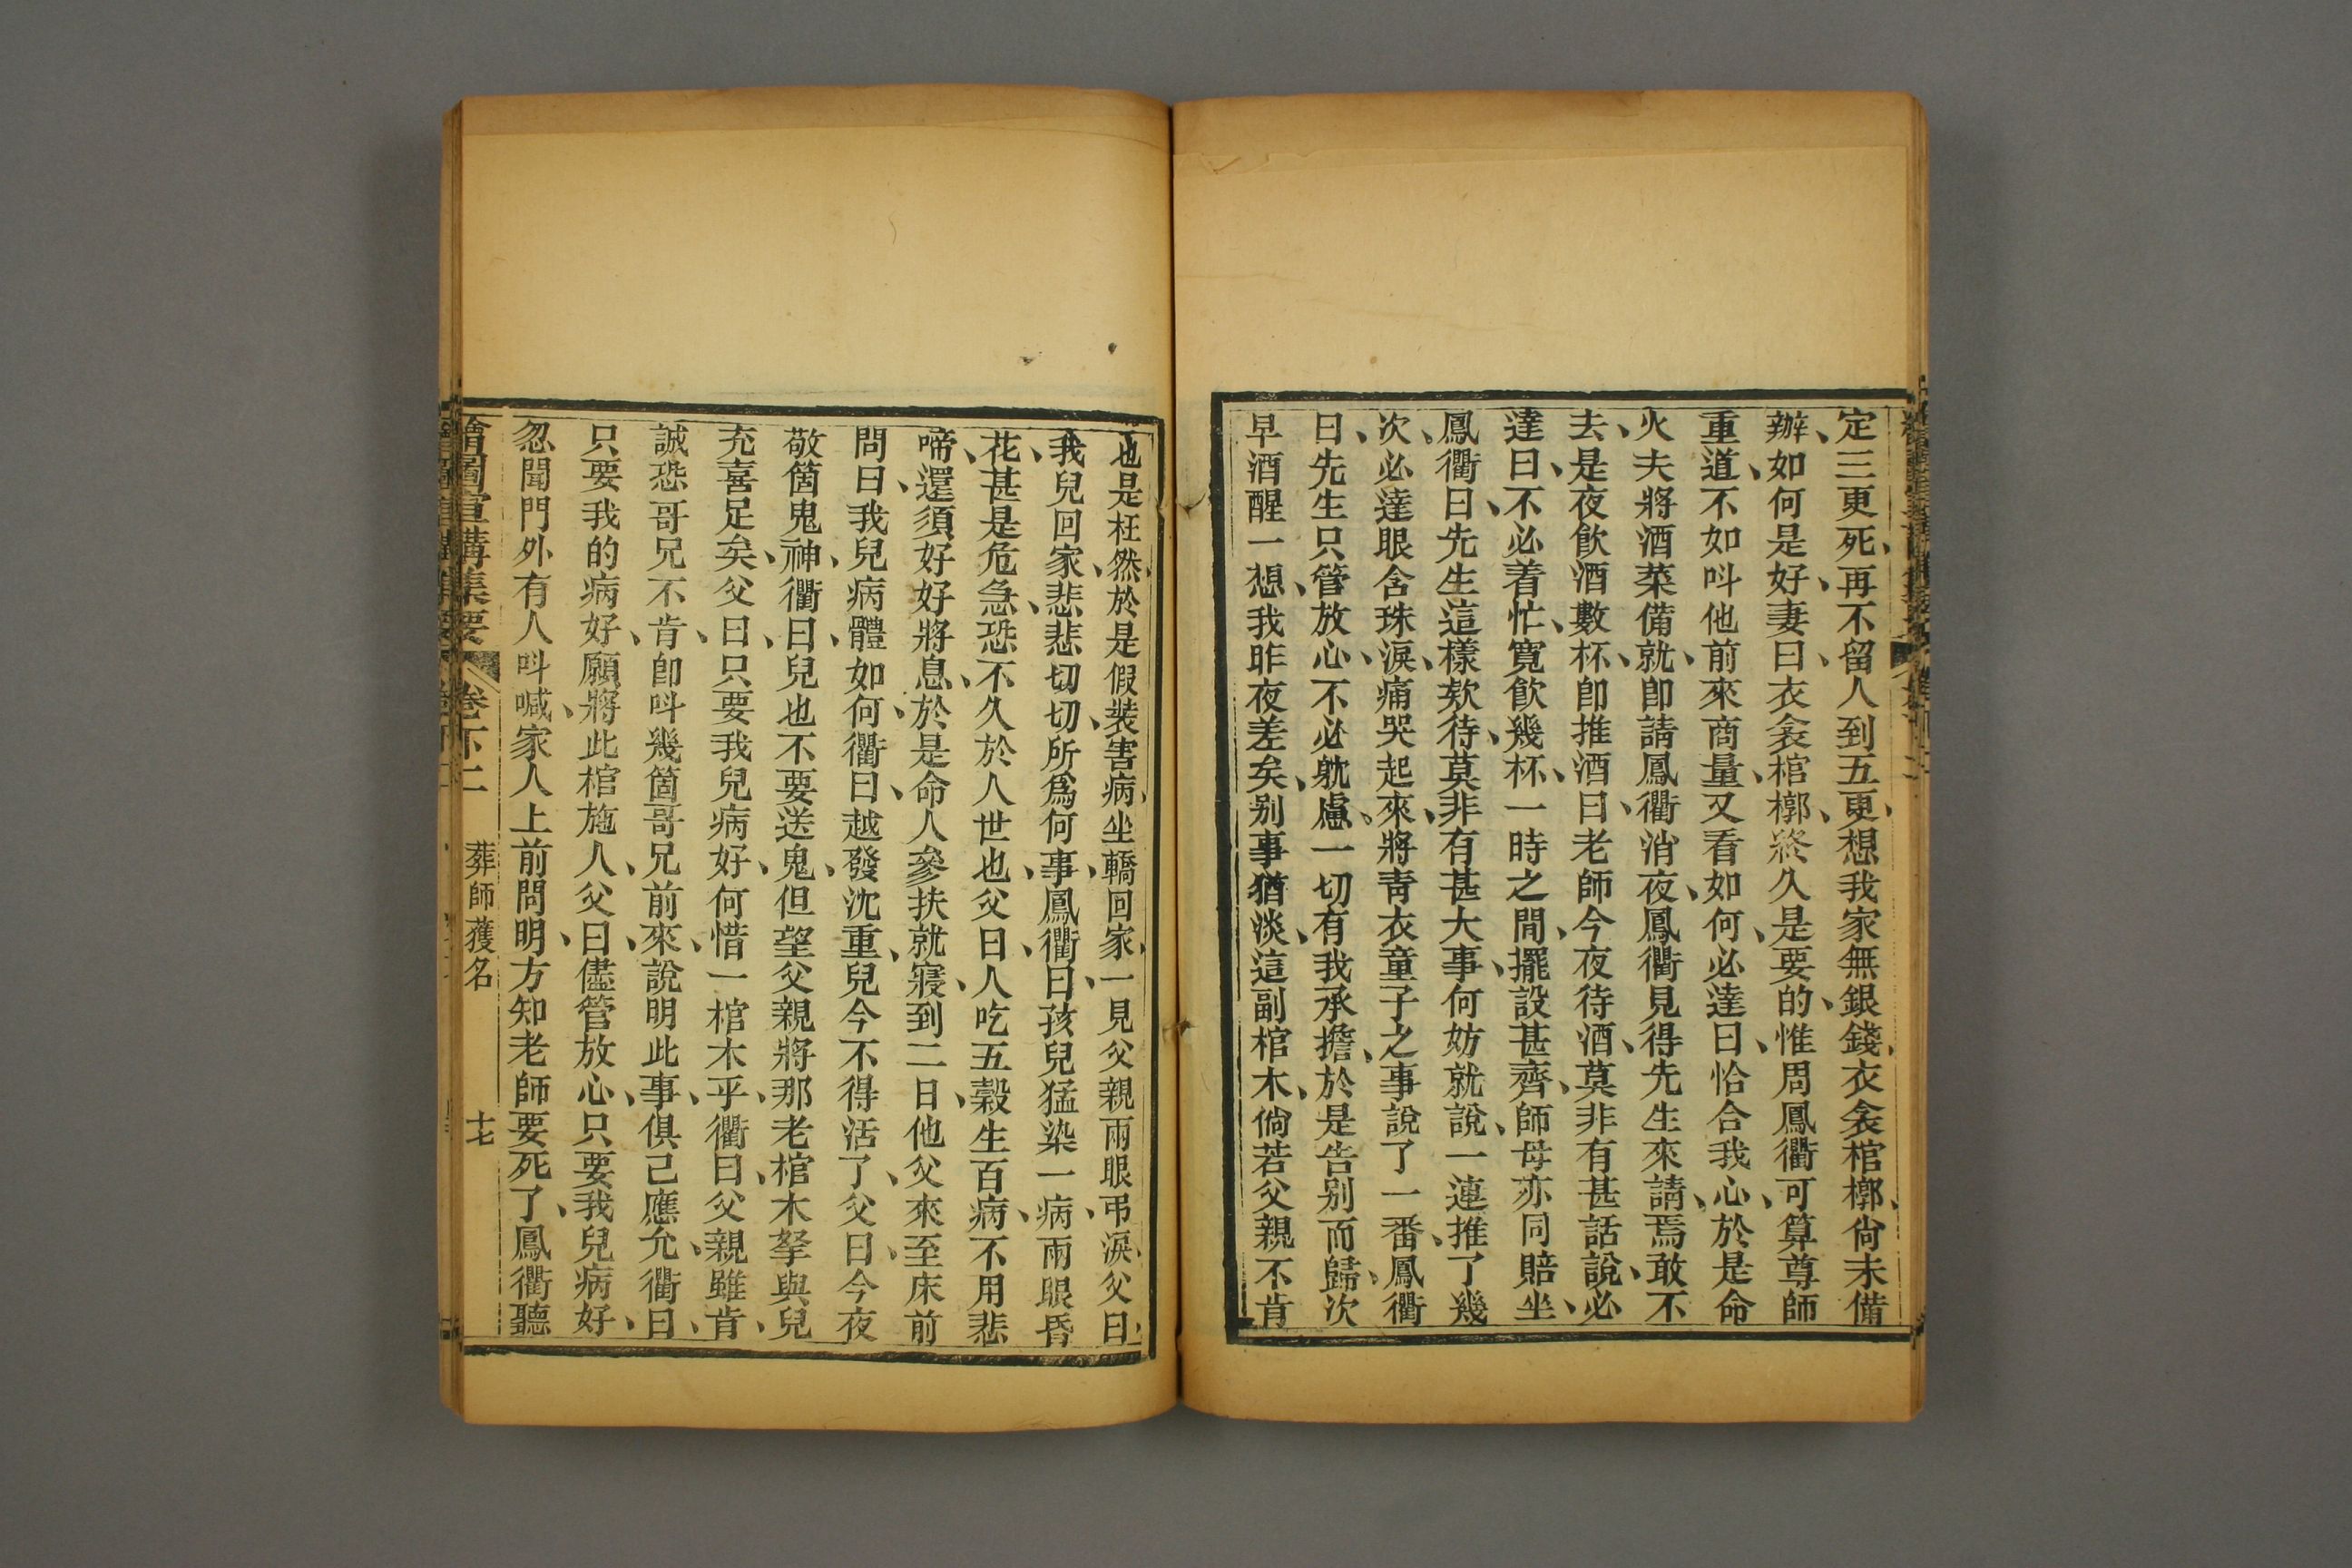 定三更死、再不留人到五更、想我家無銀錢、衣衾棺槨、尙未備
辦、如何是好、妻曰、衣衾棺槨、終久是要的、惟周鳳衢可算尊師
重道、不如呌他前來商量、又看如何、必達曰、恰合我心、於是命
火夫將酒菜備就、卽請鳳衢消夜、鳳衢見得先生來請、焉敢不
去、是夜飮酒數杯、卽推酒曰、老師今夜待酒、莫非有甚話說、必
達曰、不必着忙、寬飮幾杯、一時之間、擺設甚齊、師母亦同賠坐、
鳳衢曰、先生這樣欵待、莫非有甚大事、何妨就說、一連推了幾
次、必達眼含珠淚、痛哭起來、將靑衣童子之事說了一番、鳳衢
曰、先生只管放心、不必躭慮、一切有我承擔、於是告别而歸、次
早酒醒一想、我昨夜差矣、别事猶淡、這副棺木、倘若父親不肯
也是枉然、於是假裝害病、坐轎回家、一見父親兩眼弔淚、父曰、
我兒回家、悲悲切切、所爲何事、鳳衢曰、孩兒猛染一病、兩眼昏
花、甚是危急、恐不久於人世也、父曰、人吃五穀生百病、不用悲
啼、還須好好將息、於是命人參扶就寢、到二日、他父來至床前
問曰、我兒病體如何、衢曰、越發沈重、兒今不得活了、父曰、今夜
敬箇鬼神、衢曰、兒也不要送鬼、但望父親將那老棺木拏與兒
充喜足矣、父曰、只要我兒病好、何惜一棺木乎、衢曰、父親雖肯、
誠恐哥兄不肯、卽呌幾箇哥兄前來、說明此事、俱己應允、衢曰、
只要我的病好、願將此棺施人、父曰、儘管放心、只要我兒病好、
忽聞門外有人呌喊、家人上前問明、方知老師要死了、鳳衢聽
繪圖宣講集要 卷下二 葬師獲名 十七